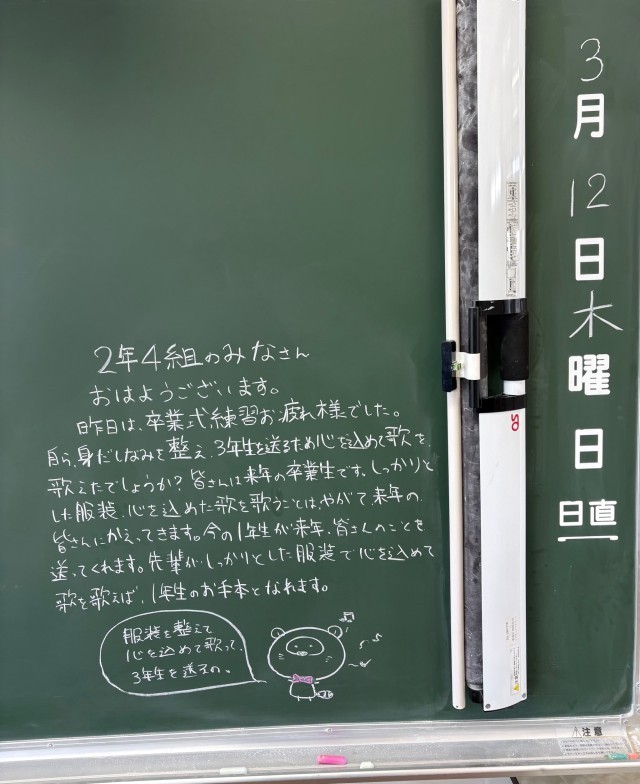 3月12日木曜日
日直
2年4組のみなさん
おはようございます。
昨日は、卒業式練習お疲れ様でした。
自ら、身だしなみを整え、3年生を送るため心を込めて歌を、
歌えたでしょうか？皆さんは来年の卒業生です。しっかりと
した服装、心を込めた歌を歌うことは、やがて、来年の、
皆さんに、かえってきます。今の1年生が来年、皆さんのことを
送ってくれます。先輩が、しっかりとした服装で心を込めて
歌を歌えば、1年生のお手本となれます。
服装を整えて
心を込めて歌って、
3年生を送るの。
注意